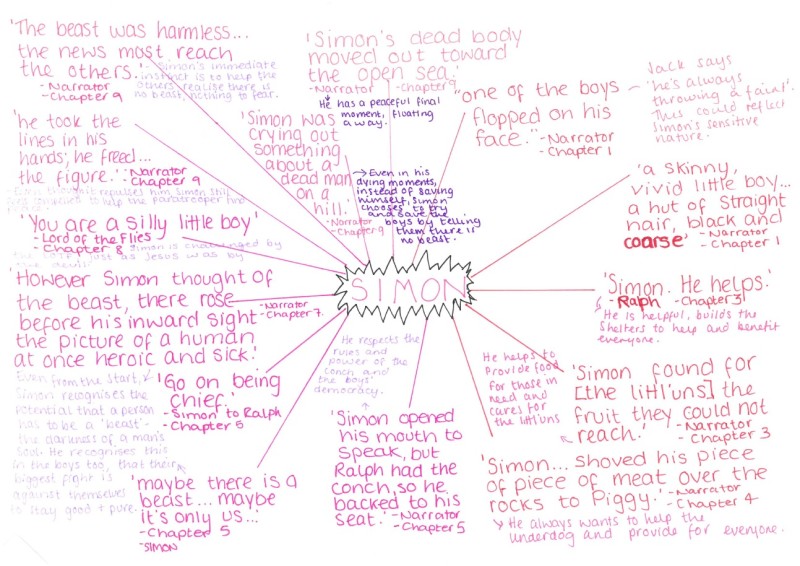 'The beast was harmless...
the news most reach
the others.'
-Narrator
-Chapter 9
- Simon's immediate
instinct is to help the
others realise there is
no beast, nothing to fear.
'Simon's dead body
moved out toward
the open sea.'
-Narrator -Chapter 9
He has a peaceful final
moment, floating
away.
"one of the boys
flopped on his
face."
-Narrator
-Chapter 1
Jack says
'he's always
throwing a faint'.
This could reflect
Simon's sensitive
nature.
'he took the
lines in his
hands; he freed...
the figure.'
-Narrator
-Chapter 9
-Even though it repulses him, Simon still
feels compelled to help the paratrooper
'Simon was
crying out
something
about a
dead man
on a
hill.'
-Narrator
-Chapter 9
Even in his
dying moments,
instead of saving
himself, Simon
chooses to try
and save the
boys by telling
them there is
no beast.
'a skinny,
vivid little boy...
a hut of straight
hair, black and
coarse'
-Narrator
-Chapter 1
'You are a silly little boy'
-Lord of the Flies
-Chapter 8
Simon is challenged by
the just as Jesus was by
the devil.
SIMON
'Simon. He helps.'
-Ralph -Chapter 3
He is helpful, builds the
shelters to help and benefit
everyone.
'However Simon thought of
the beast, there rose
before his inward sight
the picture of a human
at once heroic and sick.'
-Narrator
-Chapter 7
Even from the start,
Simon recognises the
potential that a person
has to be a 'beast'-
the darkness of a man's
soul. He recognises this
in the boys too, that their
biggest fight is
against themselves
to stay good + pure.
'Go on being
chief.'
-Simon to Ralph
-Chapter 5
He respects the
rules and
power of the
conch and
the boys'
democracy.
'Simon opened
his mouth to
speak, but
Ralph had the
conch, so he
backed to his
seat.'
-Narrator
-Chapter 5
He helps to
provide food
for those in
need and
cares for
the littl'uns
'Simon found for
[the littl'uns] the
fruit they could not
reach.'
-Narrator
-Chapter 3
'maybe there is a
beast... maybe
it's only us...'
-Chapter 5
-SIMON
'Simon... shoved his piece
of piece of meat over the
rocks to Piggy.'
-Narrator
-Chapter 4
He always wants to help the
underdog and provide for everyone.